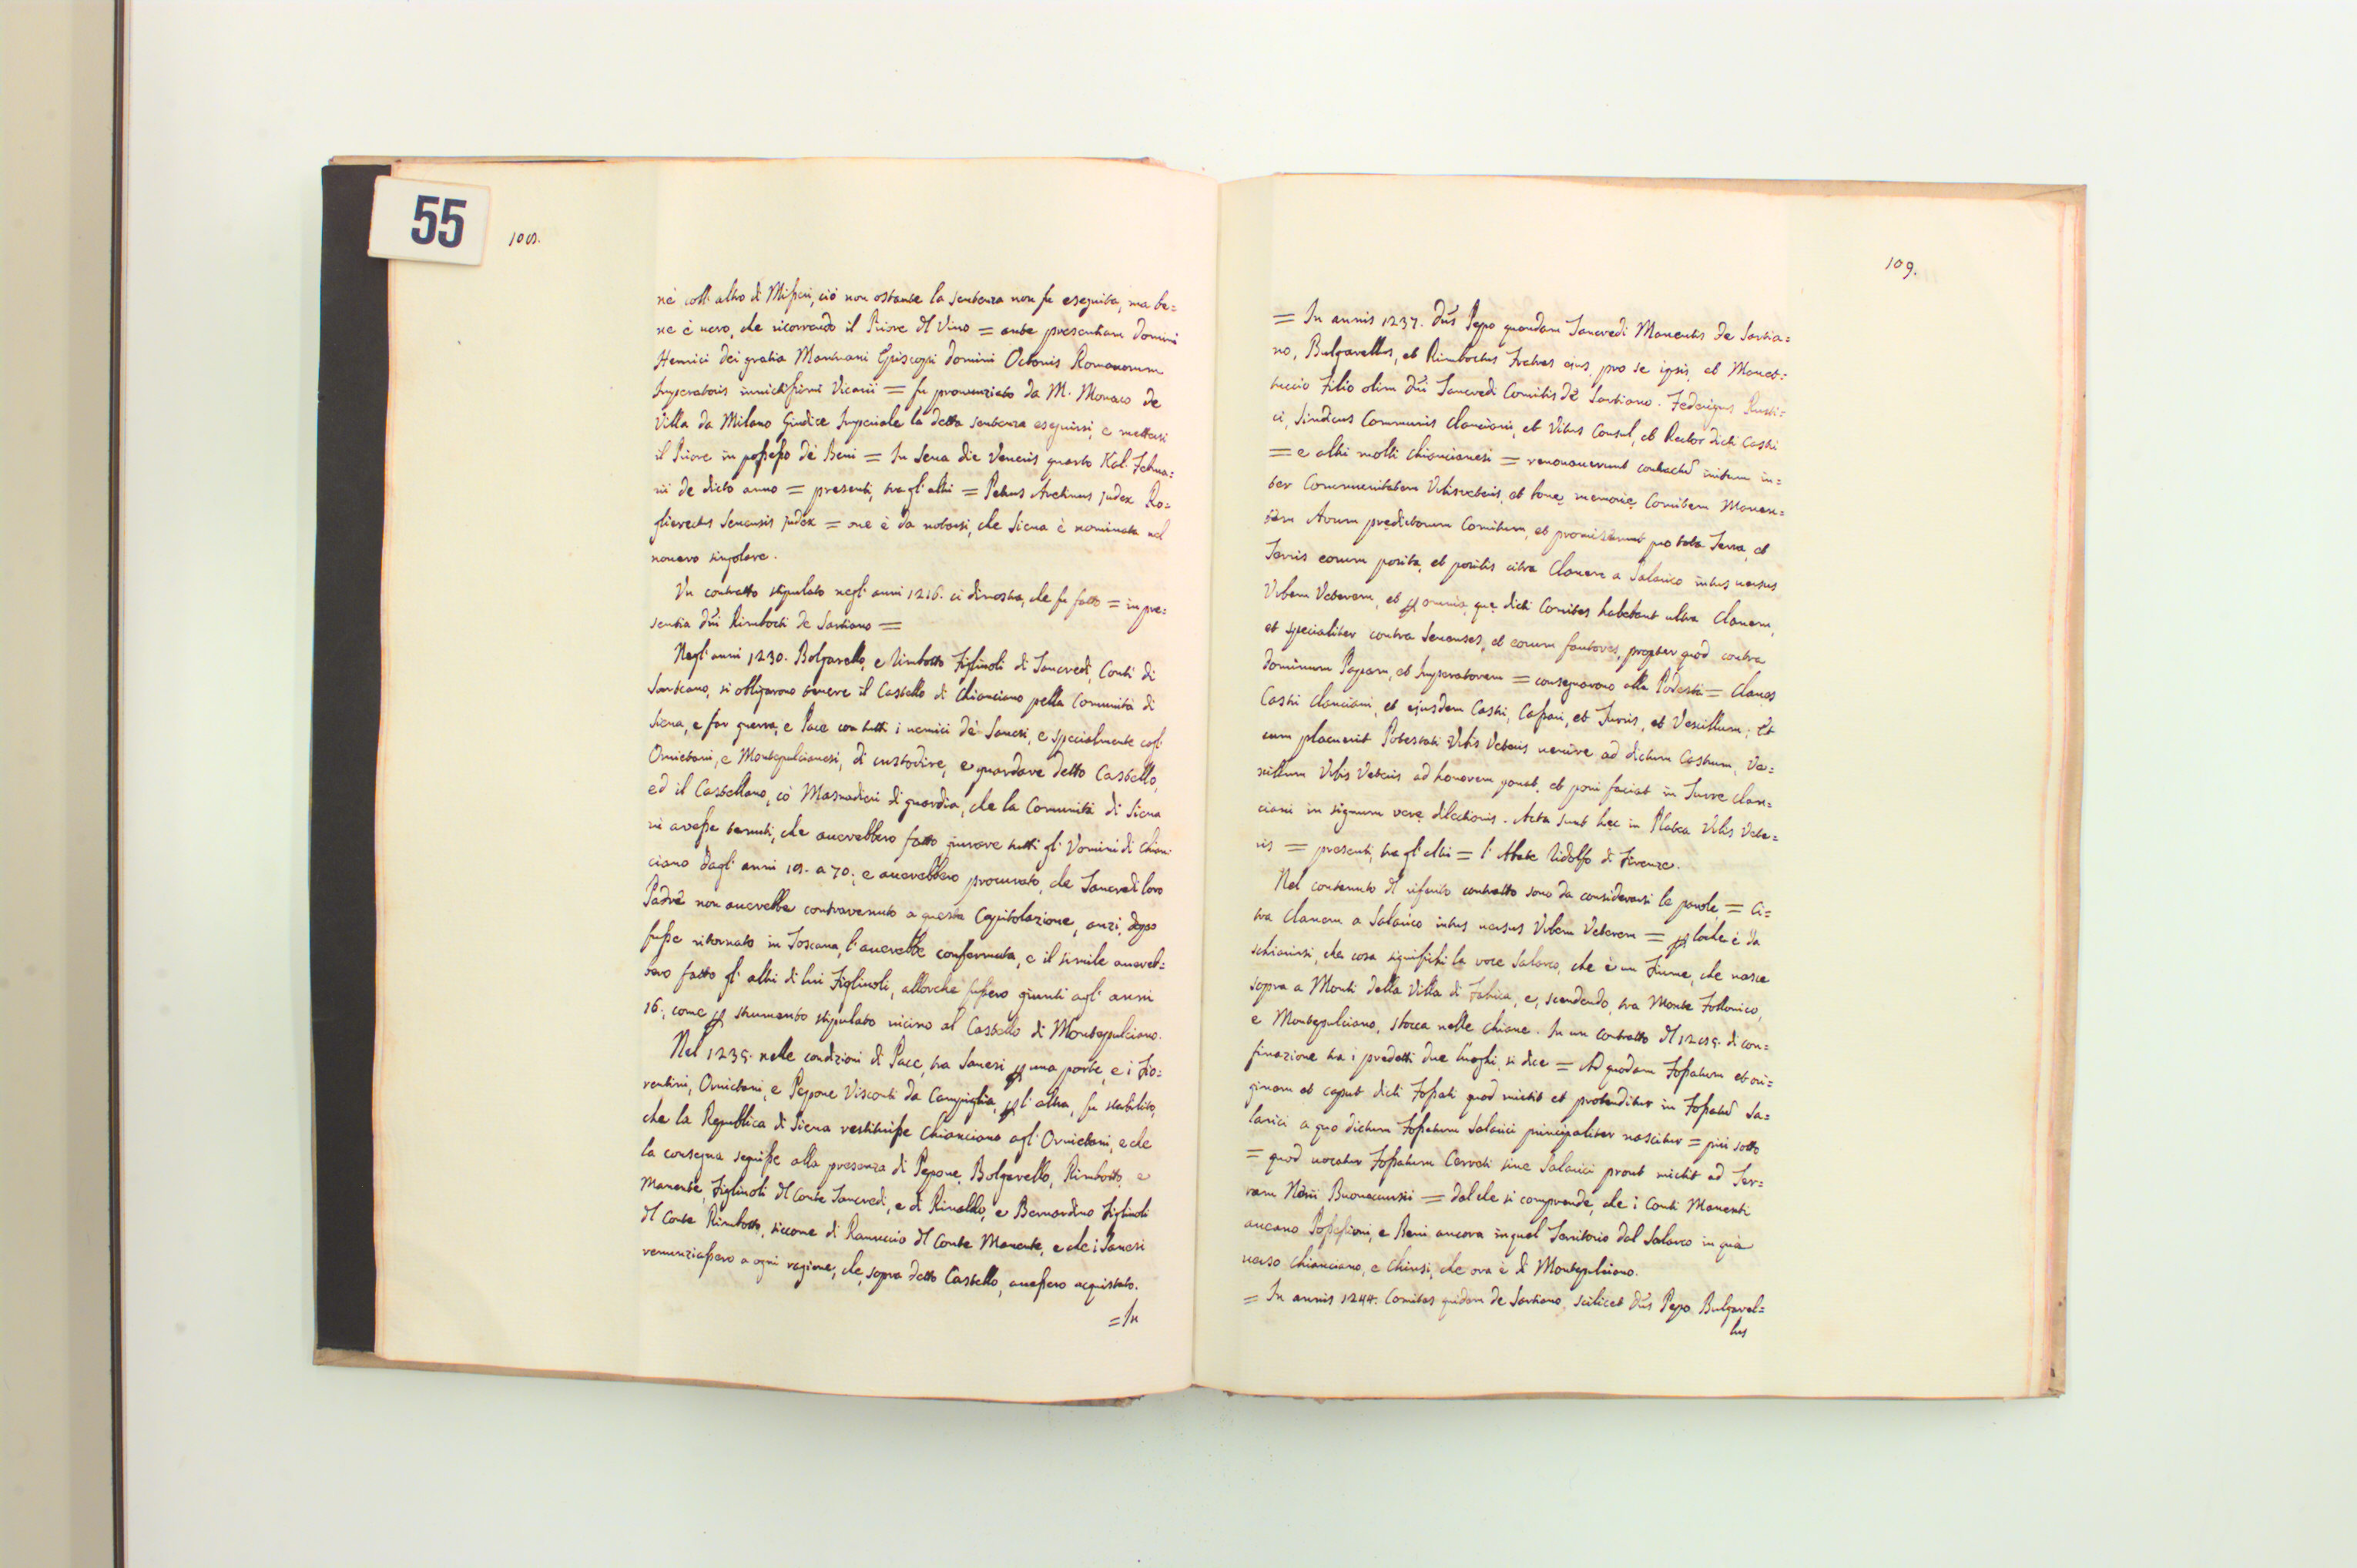 55
108.
nè coll'altro di Missari, ciò non ostante la sentenza non fu eseguita, ma be=
ne è uero, che ricorrendo il Priore del Vivo = ante presentiam Domini
Henrici dei gratia Mantuani Episcopi Domini Octonis Romanorum
Imperatoris inuictissimi Vicarii = fu pronunziato da M. Monaco de
Villa da Milano Giudice Imperiale la detta sentenza eseguirsi, e mettersi
il Priore in possesso dè Beni = In Sena die Veneris quarto Kal. Februa=
rii de dicto anno = presenti, tra gl'altri = Petrus Aretinus judex Ro=
glierectus Senensis judex = oue è da notarsi, che Siena è nominata nel
nouero singolare.
Un contratto stipulato negl'anni 1216. ci dimostra, che fu fatto = in pre=
sentia dn̄i Rimbocti de Sartiano =
Negl'anni 1230. Bolgarello, e Rimbotto Figliuoli di Tancredi, Conti di
Sarteano, si obligarono tenere il Castello di Chianciano pella Comunità di
Siena, e far guerra, e Pace con tutti i nemici dè Sanesi, e specialmente cogl'
Oruietani, e Montepulcianesi, di custodire, e guardare detto Castello,
ed il Castellano, cò Masnadieri di guardia, che la Comunità di Siena
ui avesse tenuti, che auerebbero fatto giurare tutti gl'Uomini di Chian=
ciano dagl'anni 18. a 70.; e auerebbero procurato, che Tancredi loro
Padre non auerebbe contravenuto a questa Capitolazione, anzi, dopo
fusse ritornato in Toscana, l'auerebbe confermata, e il simile auereb=
bero fatto gl'altri di lui Figliuoli, allorche fussero giunti agl'anni
16., come per strumento stipulato uicino al Castello di Montepulciano.
Nel 1235. nelle condizioni di Pace, tra Sanesi per una parte, e i Fio=
rentini, Oruietani, e Pepone Visconti da Campiglia, per l'altra, fu stabilito,
che la Republica di Siena restituisse Chianciano agl'Oruietani, e che
la consegna seguisse alla presenza di Pepone, Bolgarello, Rimbotto, e
Manente, Figliuoli del Conte Tancredi, e di Rinaldo, e Bernardino Figliuoli
del Conte Rimbotto, siccome di Ranuccio del Conte Manente, e che i Sanesi
renunziassero a ogni ragione, che, sopra detto Castello, auessero acquistato.
= In
109.
= In annis 1237. dn̄s Pepo quondam Tancredi Manentis de Sartia=
no, Bulgarellus, et Rimboctus Fratres eius, pro se ipsis, et Manet=
tuccio Filio olim dn̄i Tancredi Comitis de Sartiano. Federigus Rusti=
ci, Sindicus Communis Clanciani, et Vitus Consul, et Rector dicti Castri
= e altri molti Chiancianesi = renouauerunt contractū initum in=
ter Communitatem Urbisueteris, et bonę memorię Comitem Manen=
tem Avum prędictorum Comitum, et promiserunt pro tota Terra, et
Terris eorum posita, et positis citra Clanem a Salarco intus uersus
Urbem Veterem, et per omnia, quę dicti Comites habebant ultra Clanem,
et specialiter contra Senenses, et eorum fautores, propter quod contra
Dominum Papam, et Imperatorem = consegnarono alla Podestà = Claues
Castri Clanciani, et ejusdem Castri, Cassari, et Turris, et Vexillum; Et
cum placuerit Potestati Urbis Veteris uenire ad dictum Castrum, Ve=
xillum Urbis Veteris ad honorem ponat, et poni faciat in Turre Clan=
ciani in signum verę dilectionis. Acta sunt hęc in Platea Urbis Vete=
ris = presenti, tra gl'altri = l'Abate Ridolfo di Firenze.
Nel contenuto del riferito contratto sono da considerarsi le parole = Ci=
tra Clanem a Salarico intus uersus Urbem Veterem = per loche è da
schiarirsi, che cosa significhi la voce Salarco, che è un Fiume, che nasce
sopra a Monti della Villa di Fabica, e, scendendo, tra Monte Follonico,
e Montepulciano, sbocca nelle Chiane. In un contratto del 1285. di con=
finazione tra i predetti due luoghi, si dice = Ad quodam Fossatum et ori=
ginem et caput dicti Fossati quod mictit et protenditur in Fossatū Sa=
larici a quo dictum Fossatum Salarici principaliter nascitur = più sotto
= quod uocatur Fossatum Cerreti siue Salarici prout mictit ad Ter=
ram Nerii Buonacursii = dal che si comprende, che i Conti Manenti
aueano Possessioni, e Beni ancora in quel Territorio dal Salarco in quà
uerso Chianciano, e Chiusi, che ora è di Montepulciano.
= In annis 1244. Comites quidem de Sartiano, scilicet dn̄s Pepo Bulgarel=
lus